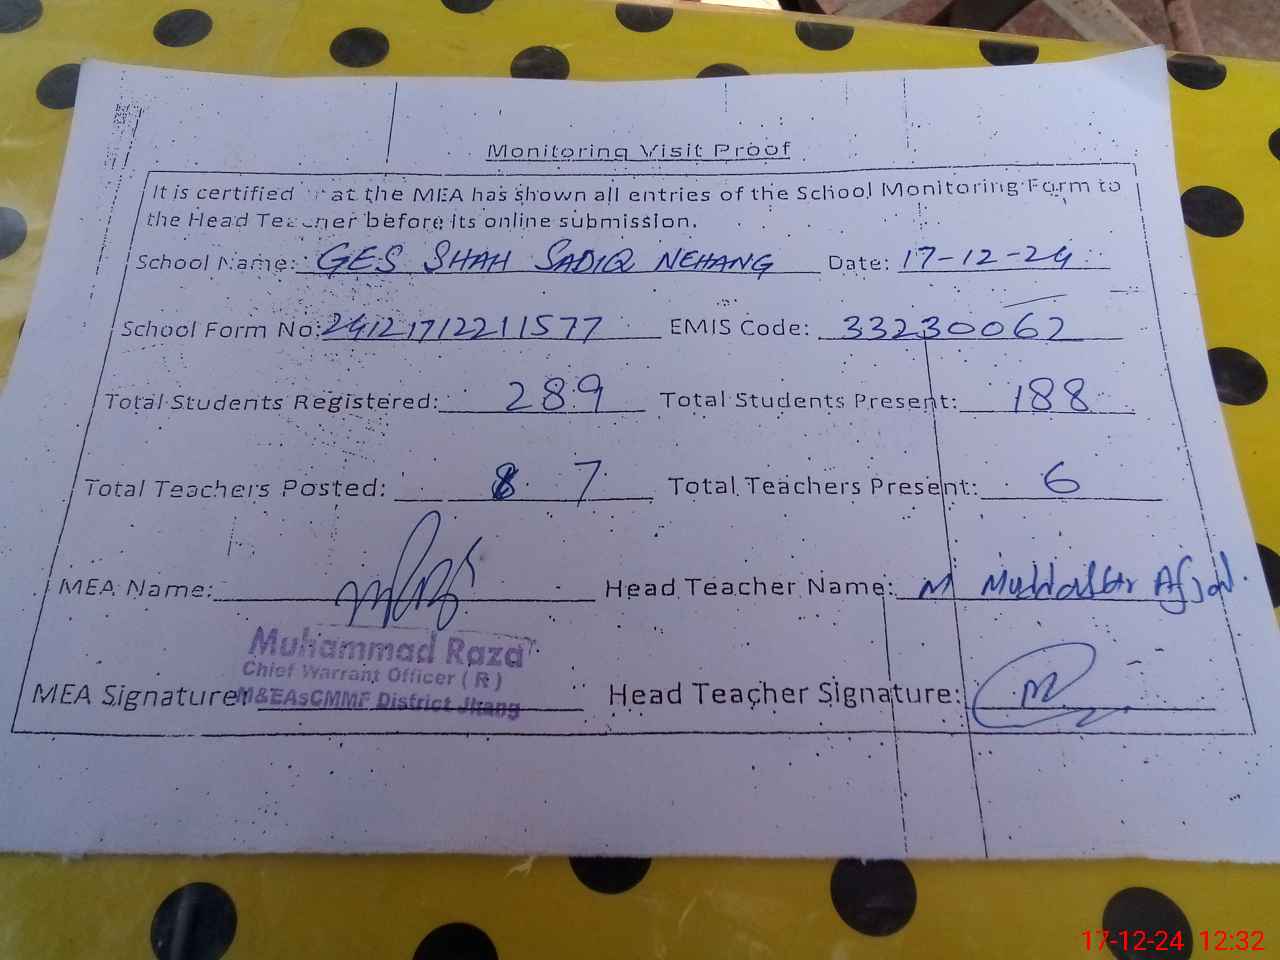 Monitoring Visit Proof
It is certified that the MEA has shown all entries of the School Monitoring Form to
the Head Teacher before its online submission.
School Name: GES SHAH SADIQ NEHANG Date: 17-12-24
School Form No: 24121712211577 EMIS Code: 33230062
Total Students Registered: 289 Total Students Present: 188
Total Teachers Posted: 7 Total Teachers Present: 6
MEA Name: Head Teacher Name: M Muddassar Afzal.
Muhammad Raza
Chief Warrant Officer (R)
MEA Signature: M&EAsCMMF District Jhang Head Teacher Signature:
17-12-24 12:32